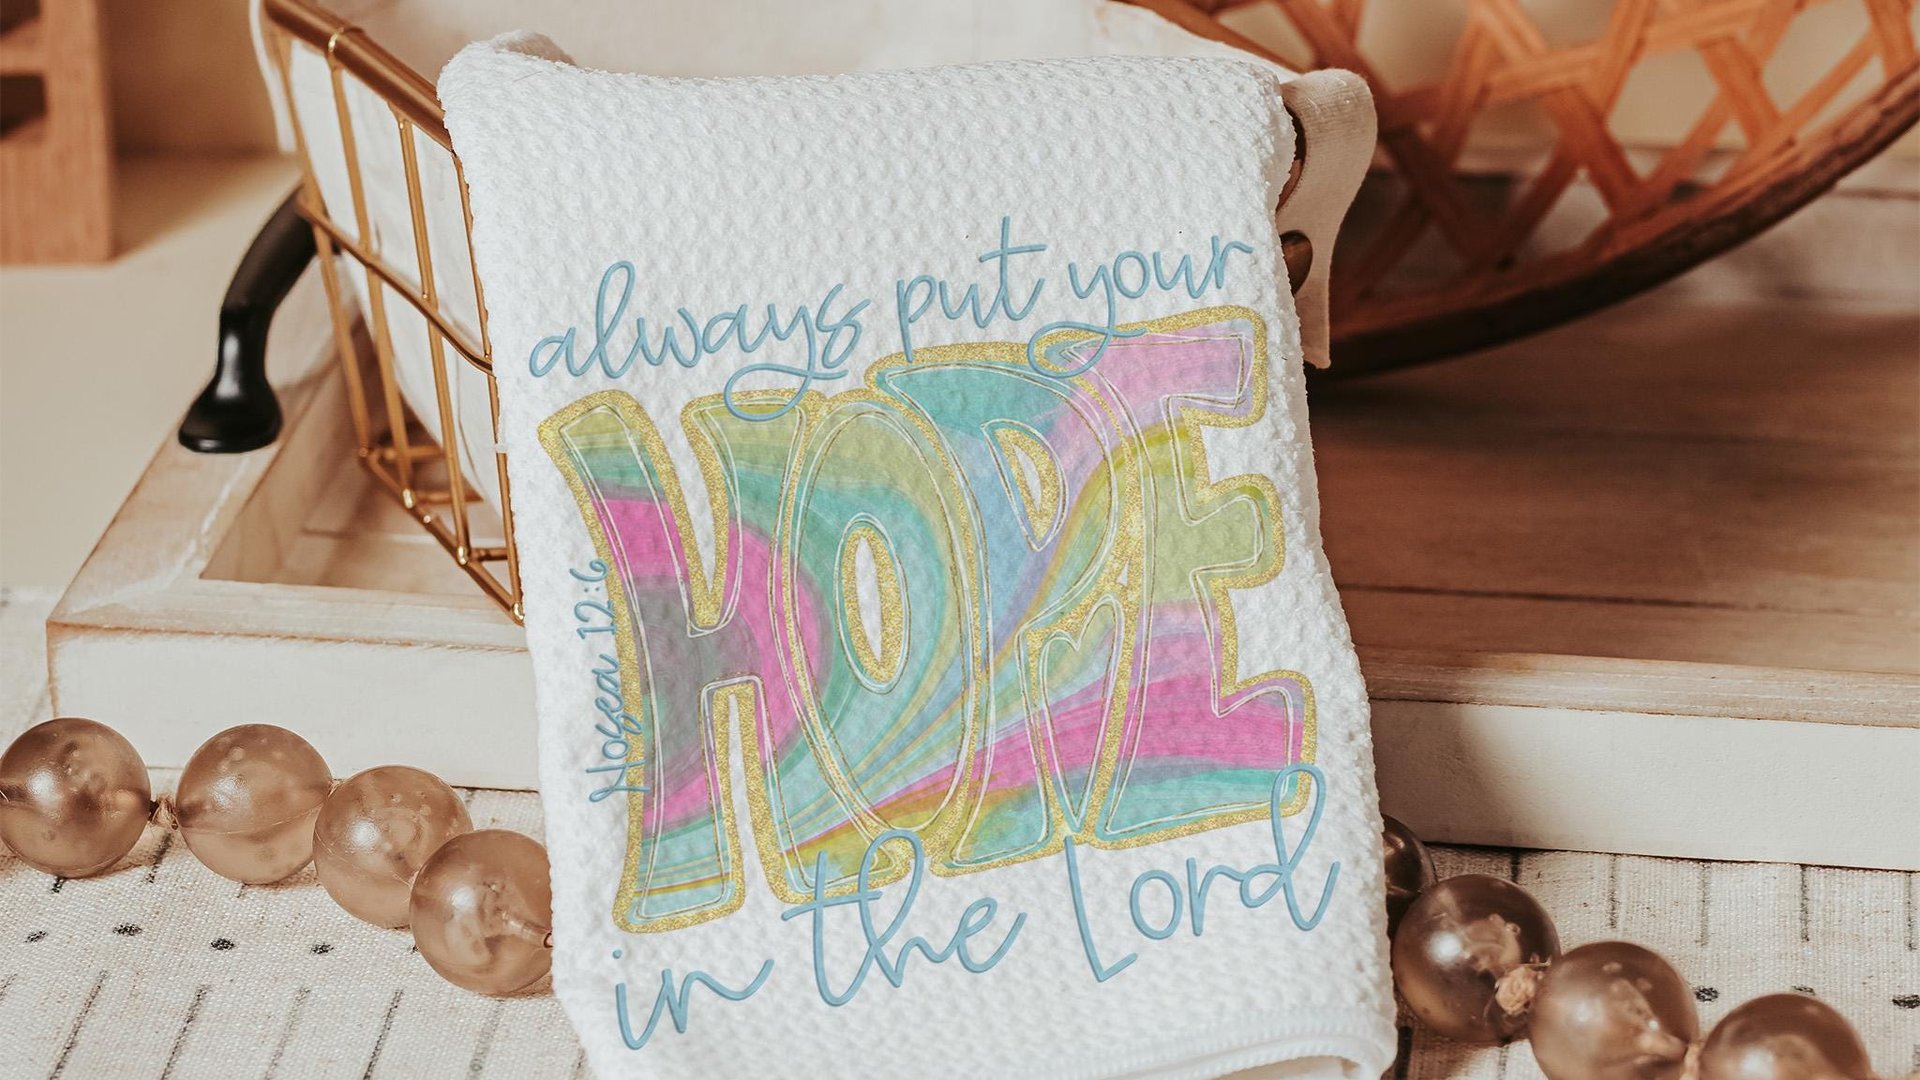 always put your
HOPE
in the Lord
Hosea 12:6